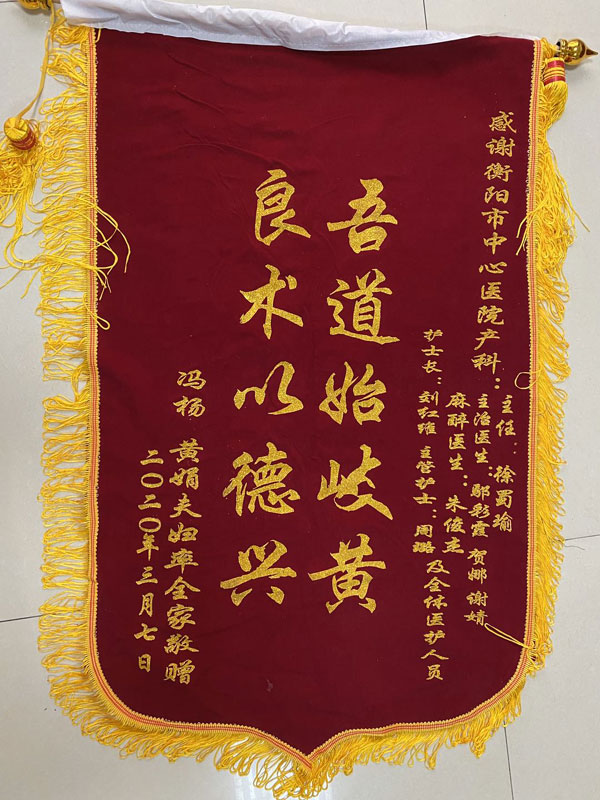 感谢衡阳市中心医院产科：主任：徐蜀瑜
主治医生：邬彩霞 贺娜 谢婧
麻醉医生：朱俊杰
护士长：刘红维 主管护士：周璐 及全体医护人员
吾道始岐黄
良术以德兴
冯杨 黄娟夫妇率全家敬赠
二〇二〇年三月七日